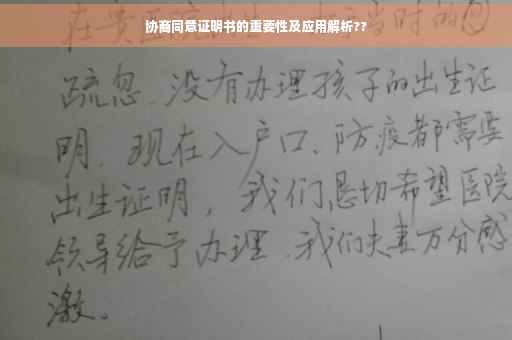 协商同意证明书的重要性及应用解析??
当时的
疏忽.没有办理孩子的出生证
明.现在入户口、防疫都需要
出生证明,我们恳切希望医院
领导给予办理.我们夫妻万分感
激。